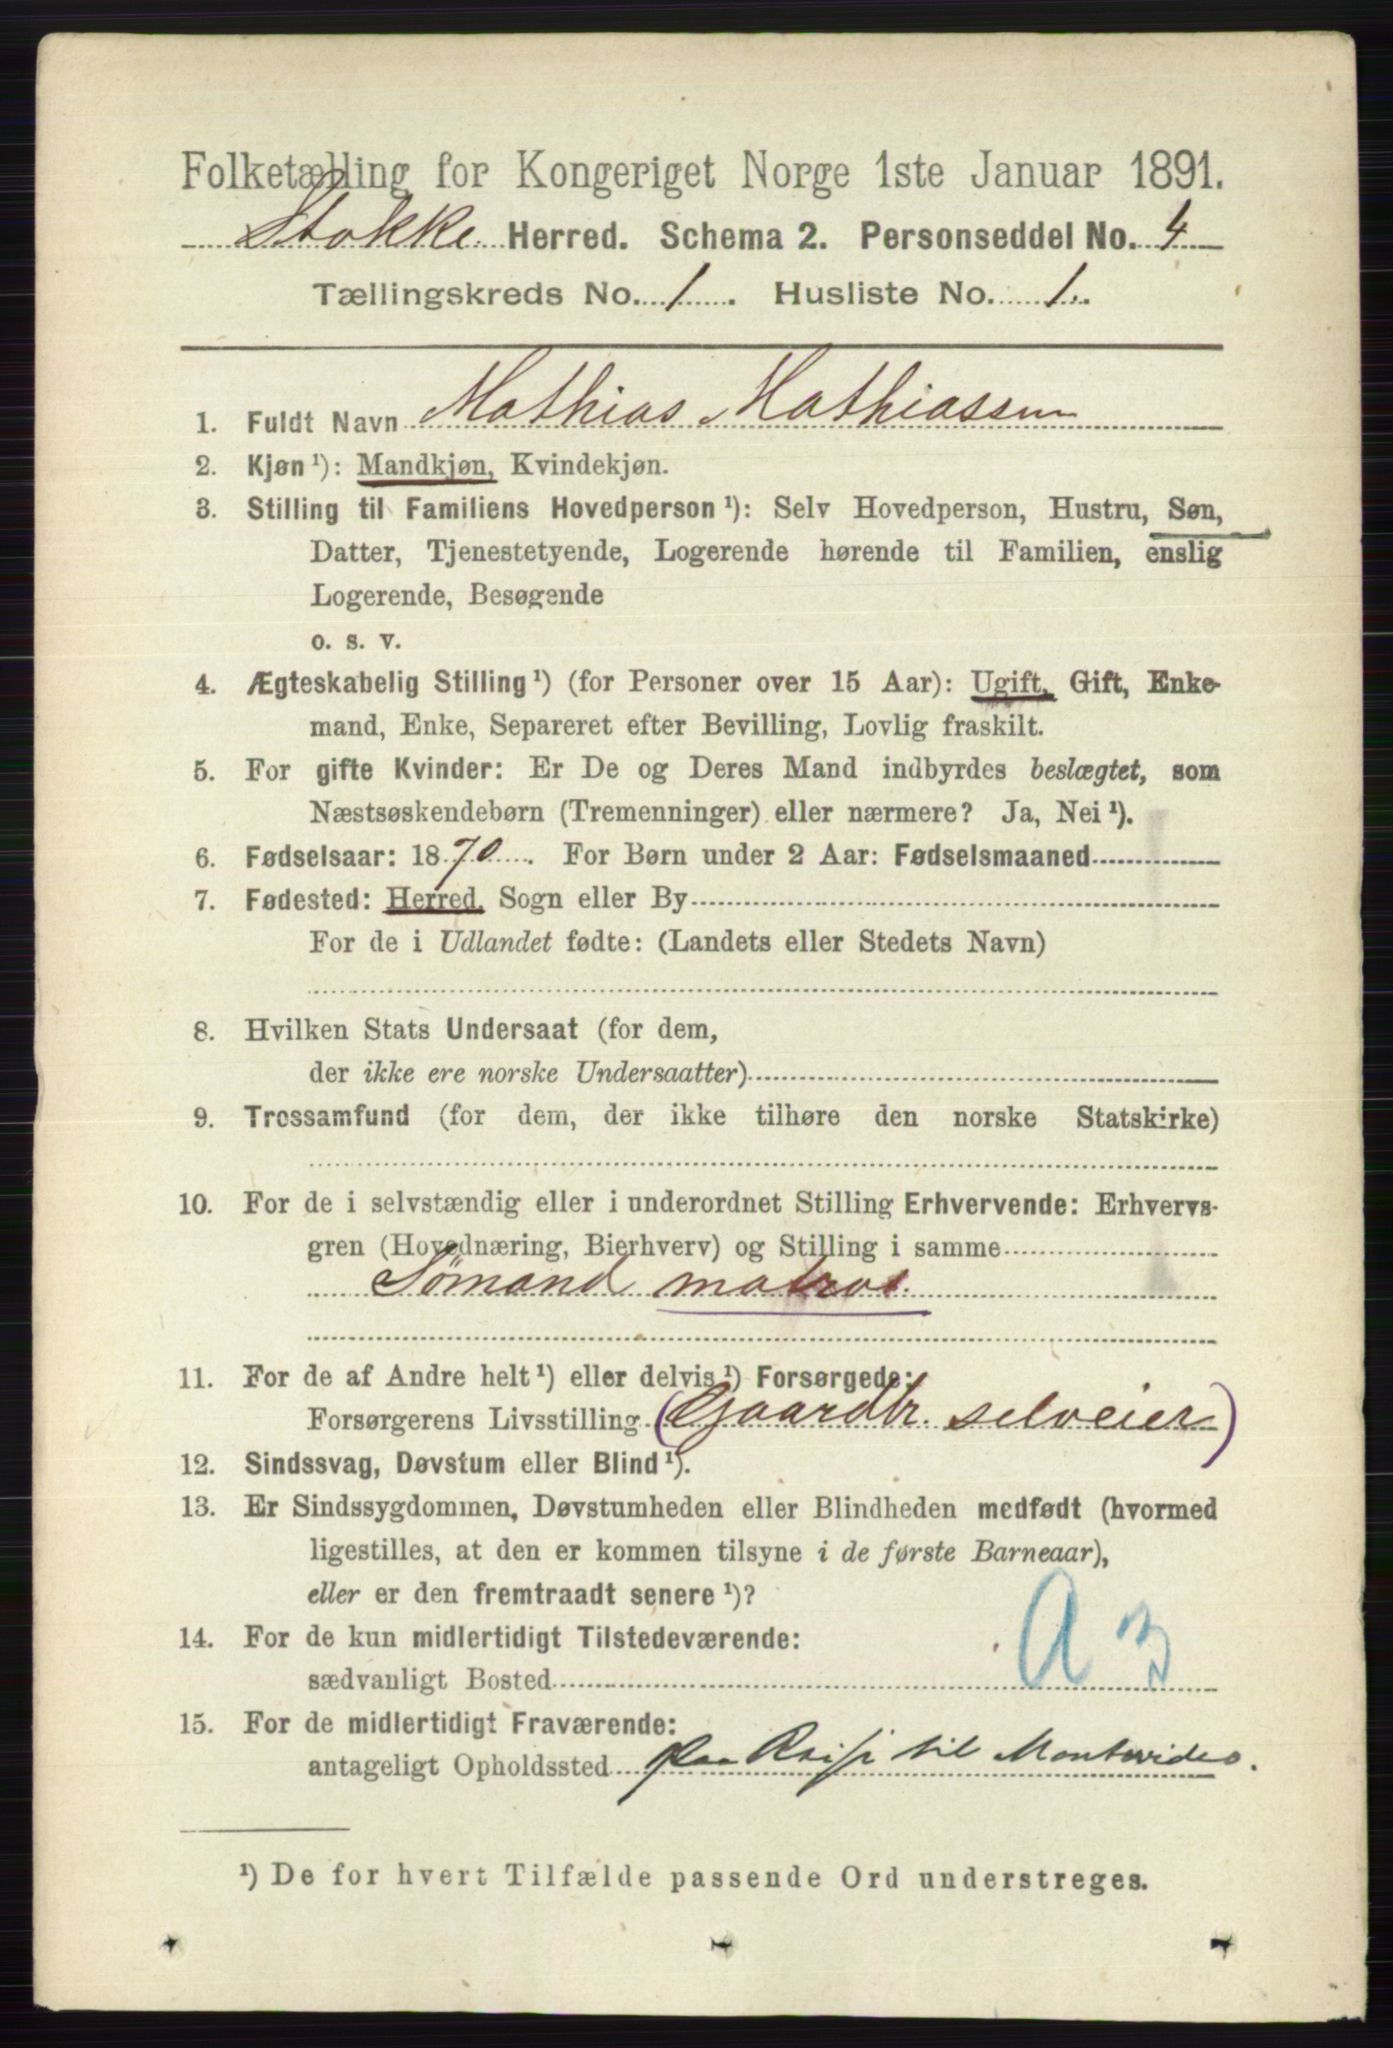 Folketælling for Kongeriget Norge 1ste Januar 1891.
Stokke Herred. Schema 2. Personseddel No. 4
Tællingskreds No. 1. Husliste No. 1.
1. Fuldt Navn Mathias Mathiassen
2. Kjøn ¹): Mandkjøn, Kvindekjøn.
3. Stilling til Familiens Hovedperson ¹): Selv Hovedperson, Hustru, Søn,
Datter, Tjenestetyende, Logerende hørende til Familien, enslig
Logerende, Besøgende
o. s. v.
4. Ægteskabelig Stilling ¹) (for Personer over 15 Aar): Ugift, Gift, Enke-
mand, Enke, Separeret efter Bevilling, Lovlig fraskilt.
5. For gifte Kvinder: Er De og Deres Mand indbyrdes beslægtet, som
Næstsøskendebørn (Tremenninger) eller nærmere? Ja, Nei ¹).
6. Fødselsaar: 1870. For Børn under 2 Aar: Fødselsmaaned
7. Fødested: Herred, Sogn eller By
For de i Udlandet fødte: (Landets eller Stedets Navn)
8. Hvilken Stats Undersaat (for dem,
der ikke ere norske Undersaatter)
9. Trossamfund (for dem, der ikke tilhøre den norske Statskirke)
10. For de i selvstændig eller i underordnet Stilling Erhvervende: Erhvervs-
gren (Hovednæring, Bierhverv) og Stilling i samme
Sømand matros.
11. For de af Andre helt ¹) eller delvis ¹) Forsørgede:
Forsørgerens Livsstilling (Gaardbr. selveier)
12. Sindssvag, Døvstum eller Blind ¹).
13. Er Sindssygdommen, Døvstumheden eller Blindheden medfødt (hvormed
ligestilles, at den er kommen tilsyne i de første Barneaar),
eller er den fremtraadt senere ¹)?
14. For de kun midlertidigt Tilstedeværende:
sædvanligt Bosted
A 3
15. For de midlertidigt Fraværende:
antageligt Opholdssted paa Reise til Montevideo.
¹) De for hvert Tilfælde passende Ord understreges.